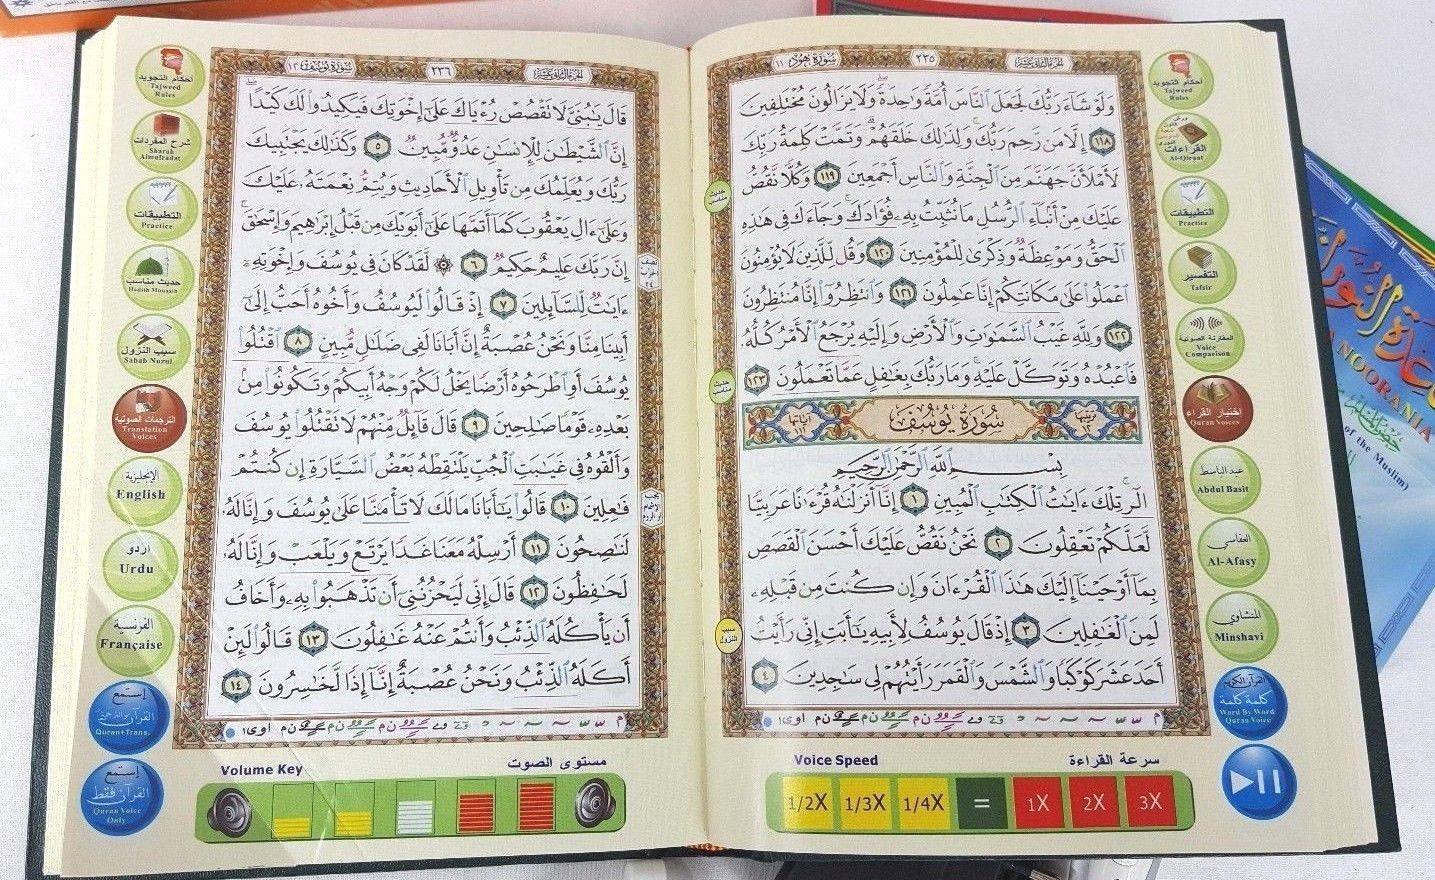 سُورَةُ هُودٍ ١١
٢٣٥
الجزء الثاني عشر
وَلَوْ شَآءَ رَبُّكَ لَجَعَلَ ٱلنَّاسَ أُمَّةً وَٰحِدَةً وَلَا يَزَالُونَ مُخْتَلِفِينَ
١١٨ إِلَّا مَن رَّحِمَ رَبُّكَ وَلِذَٰلِكَ خَلَقَهُمْ وَتَمَّتْ كَلِمَةُ رَبِّكَ
لَأَمْلَأَنَّ جَهَنَّمَ مِنَ ٱلْجِنَّةِ وَٱلنَّاسِ أَجْمَعِينَ ١١٩ وَكُلًّا نَّقُصُّ
عَلَيْكَ مِنْ أَنۢبَآءِ ٱلرُّسُلِ مَا نُثَبِّتُ بِهِۦ فُؤَادَكَ وَجَآءَكَ فِى هَٰذِهِ
ٱلْحَقُّ وَمَوْعِظَةٌ وَذِكْرَىٰ لِلْمُؤْمِنِينَ ١٢٠ وَقُل لِّلَّذِينَ لَا يُؤْمِنُونَ
ٱعْمَلُوا۟ عَلَىٰ مَكَانَتِكُمْ إِنَّا عَٰمِلُونَ ١٢١ وَٱنتَظِرُوٓا۟ إِنَّا مُنتَظِرُونَ
١٢٢ وَلِلَّهِ غَيْبُ ٱلسَّمَٰوَٰتِ وَٱلْأَرْضِ وَإِلَيْهِ يُرْجَعُ ٱلْأَمْرُ كُلُّهُۥ
فَٱعْبُدْهُ وَتَوَكَّلْ عَلَيْهِ وَمَا رَبُّكَ بِغَٰفِلٍ عَمَّا تَعْمَلُونَ ١٢٣
سُورَةُ يُوسُفَ
بِسْمِ ٱللَّهِ ٱلرَّحْمَٰنِ ٱلرَّحِيمِ
الٓر تِلْكَ ءَايَٰتُ ٱلْكِتَٰبِ ٱلْمُبِينِ ١ إِنَّآ أَنزَلْنَٰهُ قُرْءَٰنًا عَرَبِيًّا
لَّعَلَّكُمْ تَعْقِلُونَ ٢ نَحْنُ نَقُصُّ عَلَيْكَ أَحْسَنَ ٱلْقَصَصِ
بِمَآ أَوْحَيْنَآ إِلَيْكَ هَٰذَا ٱلْقُرْءَانَ وَإِن كُنتَ مِن قَبْلِهِۦ
لَمِنَ ٱلْغَٰفِلِينَ ٣ إِذْ قَالَ يُوسُفُ لِأَبِيهِ يَٰٓأَبَتِ إِنِّى رَأَيْتُ
أَحَدَ عَشَرَ كَوْكَبًا وَٱلشَّمْسَ وَٱلْقَمَرَ رَأَيْتُهُمْ لِى سَٰجِدِينَ ٤
أحكام التجويد
Tajweed
Rules
القراءات
Al-Qiraat
التطبيقات
Practice
التفسير
Tafsir
المقارنة الصوتية
Voice
Comparison
اختيار القراء
Quran Voices
عبد الباسط
Abdul Basit
العفاسي
Al-Afasy
المنشاوي
Minshavi
القرآن الكريم
كلمة كلمة
Word By Word
Quran Voice
حديث مناسب
حديث مناسب
سبب النزول
Voice Speed
سرعة القراءة
1/2X 1/3X 1/4X = 1X 2X 3X
سُورَةُ يُوسُفَ ١٢
٢٣٦
الجزء الثاني عشر
قَالَ يَٰبُنَىَّ لَا تَقْصُصْ رُءْيَاكَ عَلَىٰٓ إِخْوَتِكَ فَيَكِيدُوا۟ لَكَ كَيْدًا
إِنَّ ٱلشَّيْطَٰنَ لِلْإِنسَٰنِ عَدُوٌّ مُّبِينٌ ٥ وَكَذَٰلِكَ يَجْتَبِيكَ
رَبُّكَ وَيُعَلِّمُكَ مِن تَأْوِيلِ ٱلْأَحَادِيثِ وَيُتِمُّ نِعْمَتَهُۥ عَلَيْكَ
وَعَلَىٰٓ ءَالِ يَعْقُوبَ كَمَآ أَتَمَّهَا عَلَىٰٓ أَبَوَيْكَ مِن قَبْلُ إِبْرَٰهِيمَ وَإِسْحَٰقَ
إِنَّ رَبَّكَ عَلِيمٌ حَكِيمٌ ٦ ۞ لَّقَدْ كَانَ فِى يُوسُفَ وَإِخْوَتِهِۦٓ
ءَايَٰتٌ لِّلسَّآئِلِينَ ٧ إِذْ قَالُوا۟ لَيُوسُفُ وَأَخُوهُ أَحَبُّ إِلَىٰٓ
أَبِينَا مِنَّا وَنَحْنُ عُصْبَةٌ إِنَّ أَبَانَا لَفِى ضَلَٰلٍ مُّبِينٍ ٨ ٱقْتُلُوا۟
يُوسُفَ أَوِ ٱطْرَحُوهُ أَرْضًا يَخْلُ لَكُمْ وَجْهُ أَبِيكُمْ وَتَكُونُوا۟ مِنۢ
بَعْدِهِۦ قَوْمًا صَٰلِحِينَ ٩ قَالَ قَآئِلٌ مِّنْهُمْ لَا تَقْتُلُوا۟ يُوسُفَ
وَأَلْقُوهُ فِى غَيَٰبَتِ ٱلْجُبِّ يَلْتَقِطْهُ بَعْضُ ٱلسَّيَّارَةِ إِن كُنتُمْ
فَٰعِلِينَ ١٠ قَالُوا۟ يَٰٓأَبَانَا مَا لَكَ لَا تَأْمَ۫نَّا عَلَىٰ يُوسُفَ وَإِنَّا لَهُۥ
لَنَٰصِحُونَ ١١ أَرْسِلْهُ مَعَنَا غَدًا يَرْتَعْ وَيَلْعَبْ وَإِنَّا لَهُۥ
لَحَٰفِظُونَ ١٢ قَالَ إِنِّى لَيَحْزُنُنِىٓ أَن تَذْهَبُوا۟ بِهِۦ وَأَخَافُ
أَن يَأْكُلَهُ ٱلذِّئْبُ وَأَنتُمْ عَنْهُ غَٰفِلُونَ ١٣ قَالُوا۟ لَئِنْ
أَكَلَهُ ٱلذِّئْبُ وَنَحْنُ عُصْبَةٌ إِنَّآ إِذًا لَّخَٰسِرُونَ ١٤
أحكام التجويد
Tajweed
Rules
شرح المفردات
Sharah
Almufradat
التطبيقات
Practice
حديث مناسب
Hadith Monasib
سبب النزول
Sabab Nuzul
الترجمات الصوتية
Translation
Voices
الإنجليزية
English
اردو
Urdu
الفرنسية
Française
إستمع
القرآن والترجمة
Quran+Trans.
إستمع
القرآن فقط
Quran Voice
Only
Volume Key
مستوى الصوت
NOORANIA
of the Muslim)